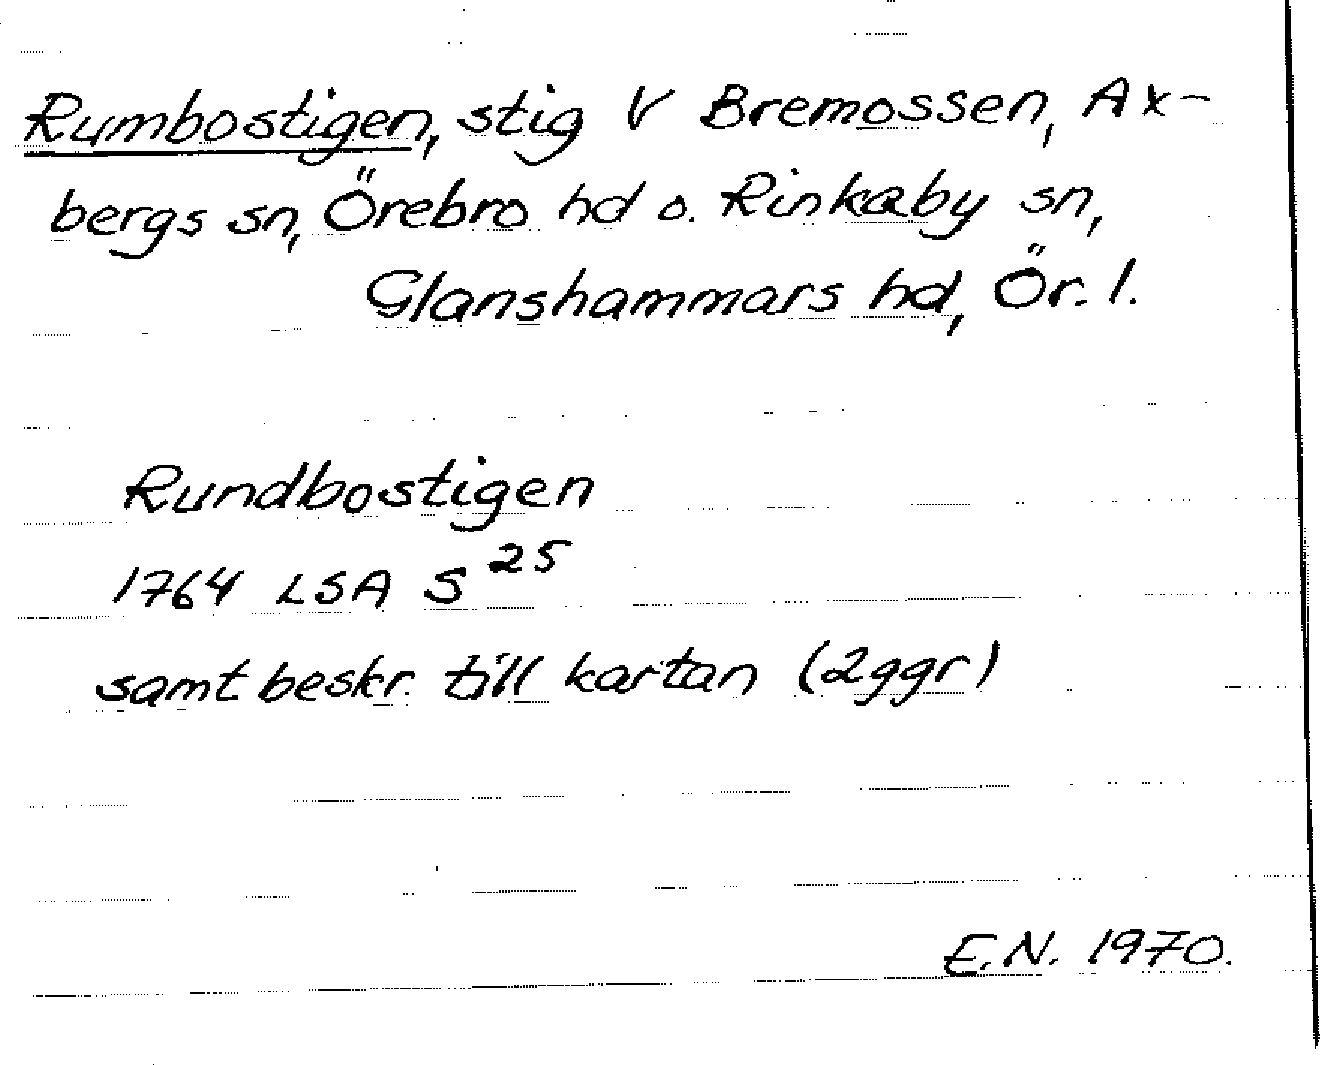 Rumbostigen, stig V Bremossen, Ax-
bergs sn, Örebro hd o. Rinkaby sn,
Glanshammars hd, Ör. l.
Rundbostigen
1764 LSA S 25
samt beskr. till kartan (2ggr)
E.N. 1970.